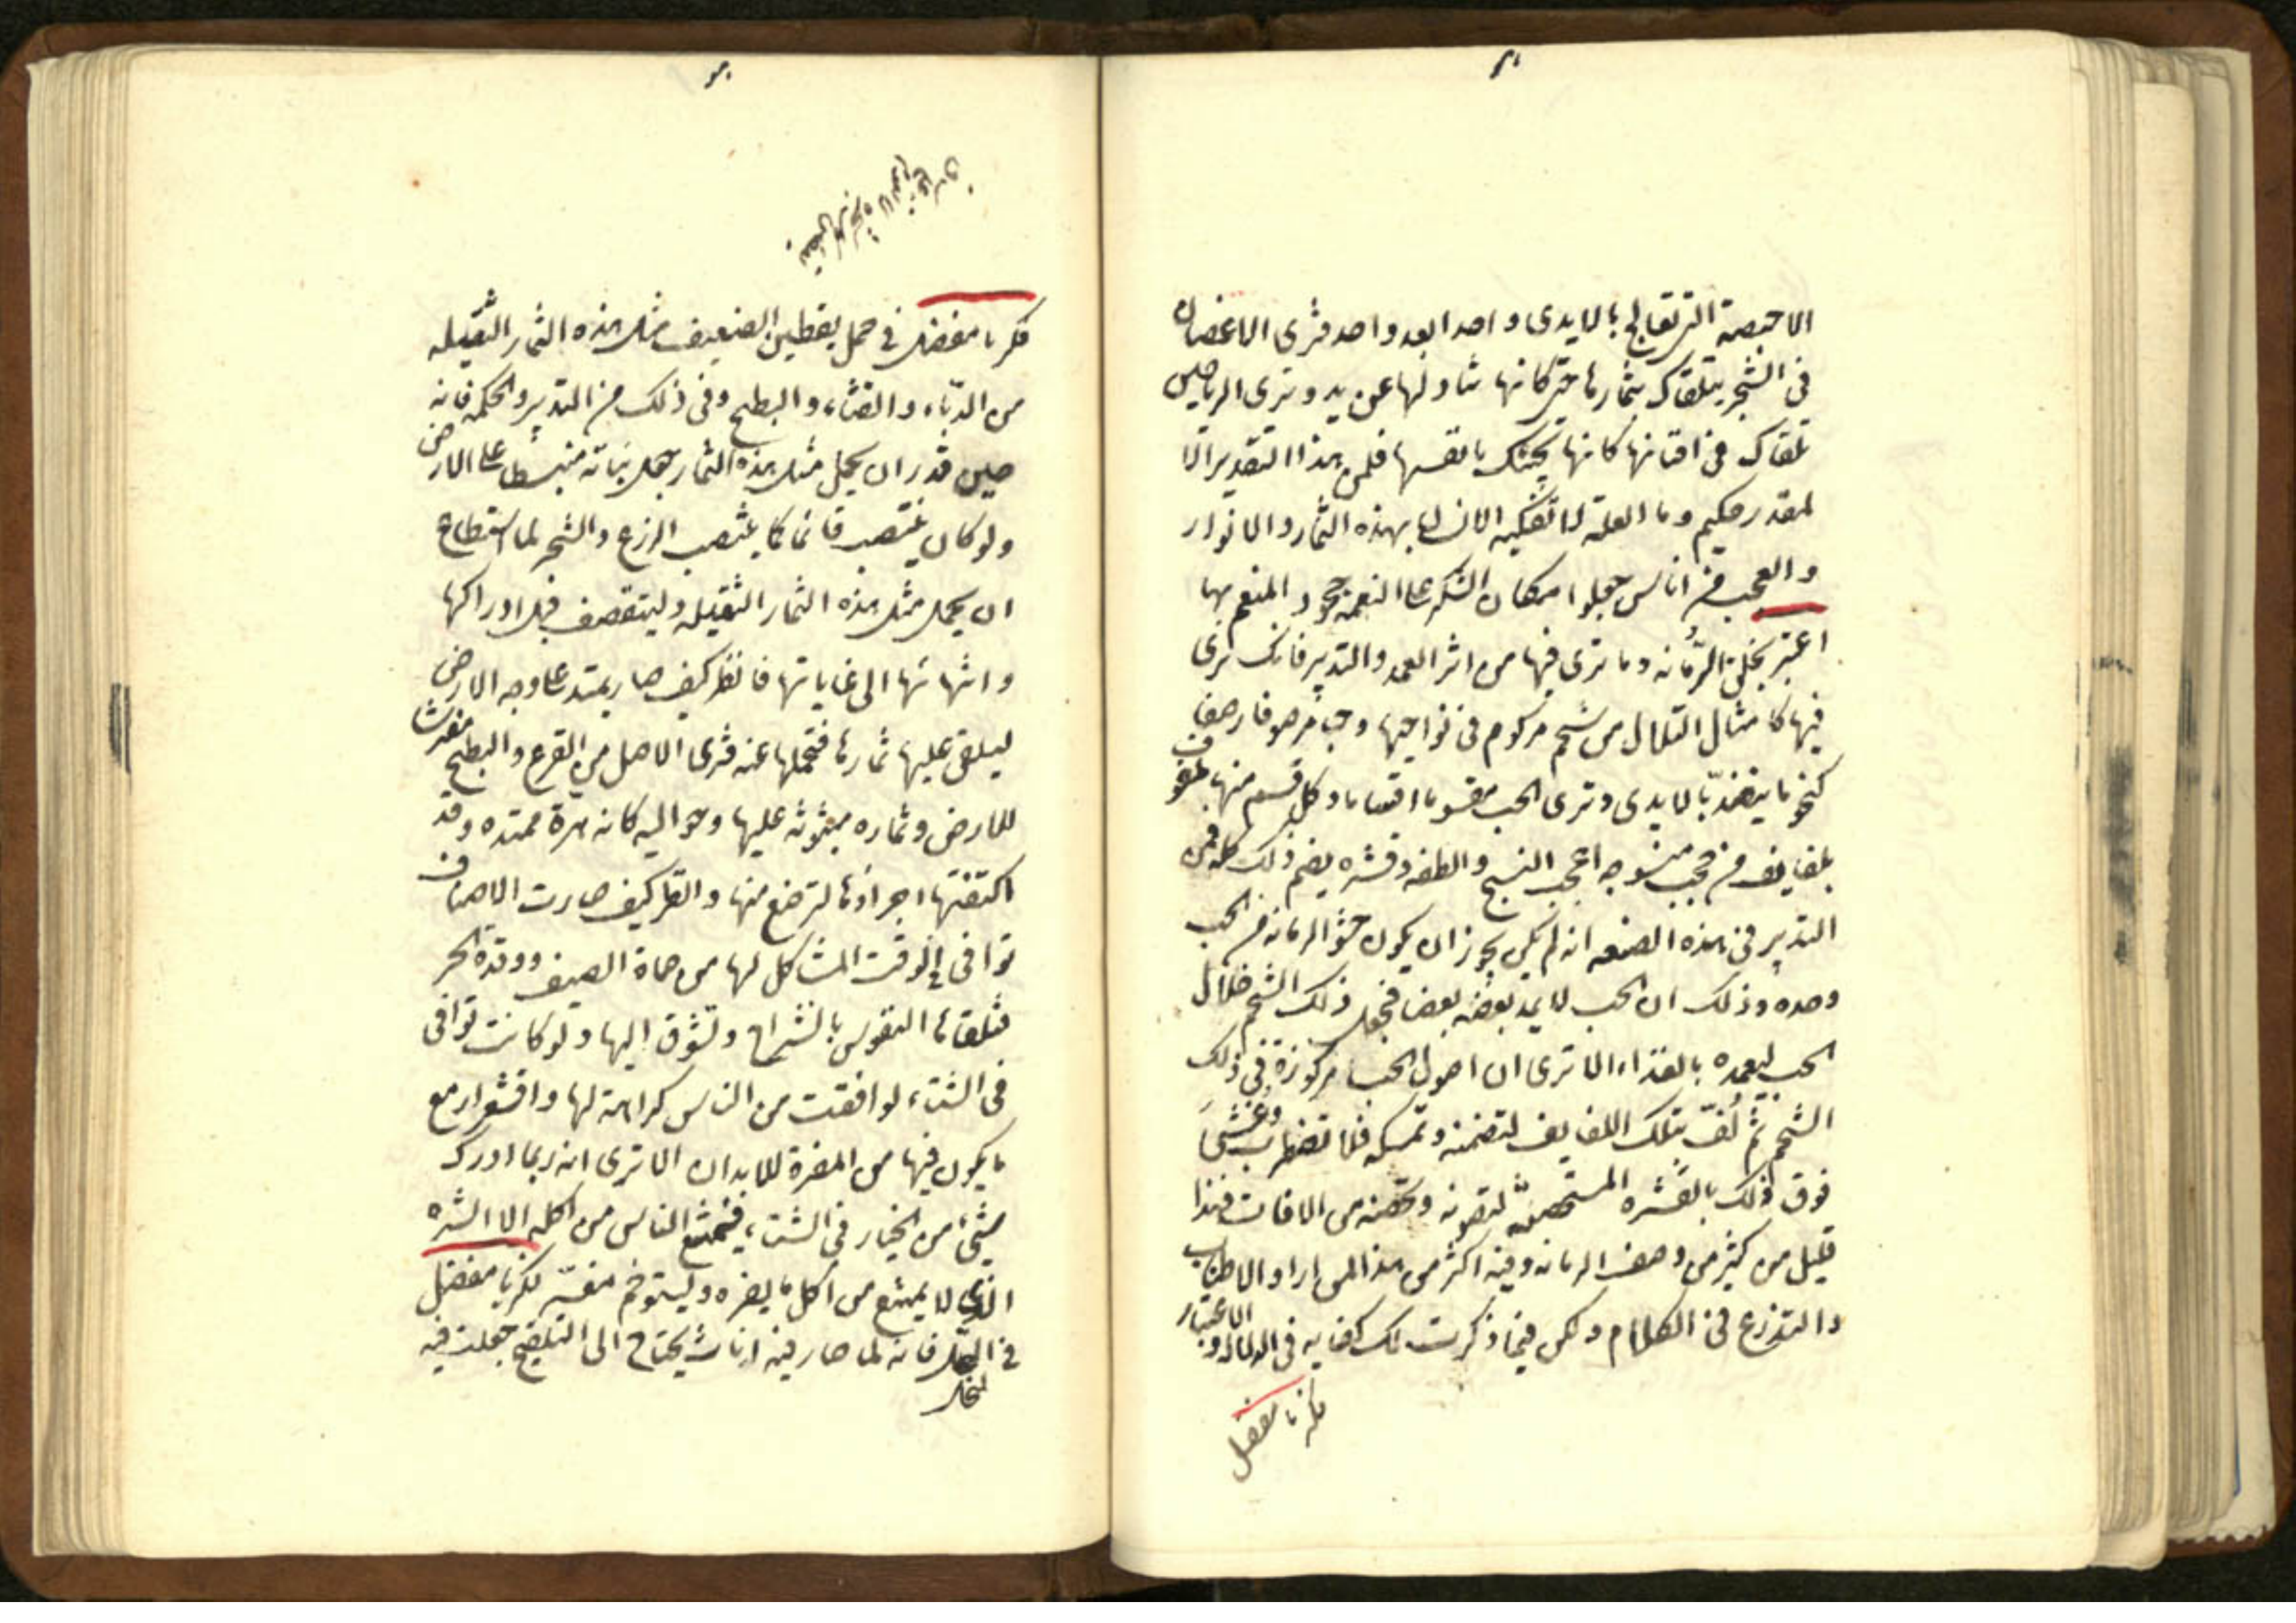 الاخبصة التي تعالج بالايدى واحدا بعد واحد فترى الاغصان
فى الشجر يتلقاك بثمارها حتى كانها تناولها عن يد وترى الرياحين
تلقاك فى افنانها كانها تجيئك بانفسها فلمن هذا التقدير الا
لمقدر حكيم وما العلة الا تفكيه الانسان بهذه الثمار والانوار
والعجب من اناس جعلوا مكان الشكر على النعمة جحود المنعم بها
اعتبر بخلق الرمانه وما ترى فيها من اثر العمد والتدبير فانك ترى
فيها كامثال التلال من شحم مركوم فى نواحيها وحب مرصوفا رصفا
كنحو ما ينضد بالايدى وترى الحب مقسوما اقساما وكل قسم منها ملفوف
بلفايف من حجب منسوجه اعجب النسج والطفه وقشره يضم ذلك كله فمن
التدبير فى هذه الصنعه انه لم يكن يجوز ان يكون حشو الرمانه من الحب
وحده وذلك ان الحب لا يمد بعضه بعضا فجعل ذلك الشحم خلال
الحب ليمده بالغذاء الا ترى ان اصول الحب مركوزة فى ذلك
الشحم ثم لُفّ بتلك اللفايف لتضمنه وتمسكه فلا تضطرب وغشى
فوق ذلك بالقشره المستحصفه لتصونه وتحصنه من الافات فهذا
قليل من كثير من وصف الرمانه وفيه اكثر من هذا لمن اراد الاطناب
والتذرع فى الكلام ولكن فيما ذكرت لك كفايه فى الدلاله والاعتبار
فكر يا مفضل
فكر يا مفضل في حمل يقطين الضعيف مثل هذه الثمار الثقيله
من الدبّاء والقثاء والبطيح وفى ذلك من التدبير والحكمه فانه
حين قدر ان يحمل مثل هذه الثمار جعل نباته منبسطا على الارض
ولو كان ينتصب قائما كما ينتصب الزرع والشجر لما استطاع
ان يحمل مثل هذه الثمار الثقيله وليتقصف قبل ادراكها
وانتهائها الى غاياتها فانظر كيف صار يمتد على وجه الارض
ليلقى عليها ثمارها فتحملها عنه فترى الاصل من القرع والبطيح مفترشا
للارض وثماره مبثوثه عليها وحواليه كانه هرة ممتده وقد
اكتنفتها اجراؤها لترضع منها وانظر كيف صارت الاصناف
توافى في الوقت المشاكل لها من حماة الصيف ووقدة الحر
فتلقاها النفوس بانشراح وتشوق اليها ولو كانت توافى
فى الشتاء لوافقت من الناس كراهة لها واقشعرار مع
ما يكون فيها من المضرة للابدان الا ترى انه ربما ادرك
شئ من الخيار فى الشتاء فيمتنع الناس من اكله الا الشره
الذى لا يمتنع من اكل ما يضره وليستوخم مغبته فكر يا مفضل
في النخل فانه لما صار فيه اناث يحتاج الى التلقيح جعلت فيه